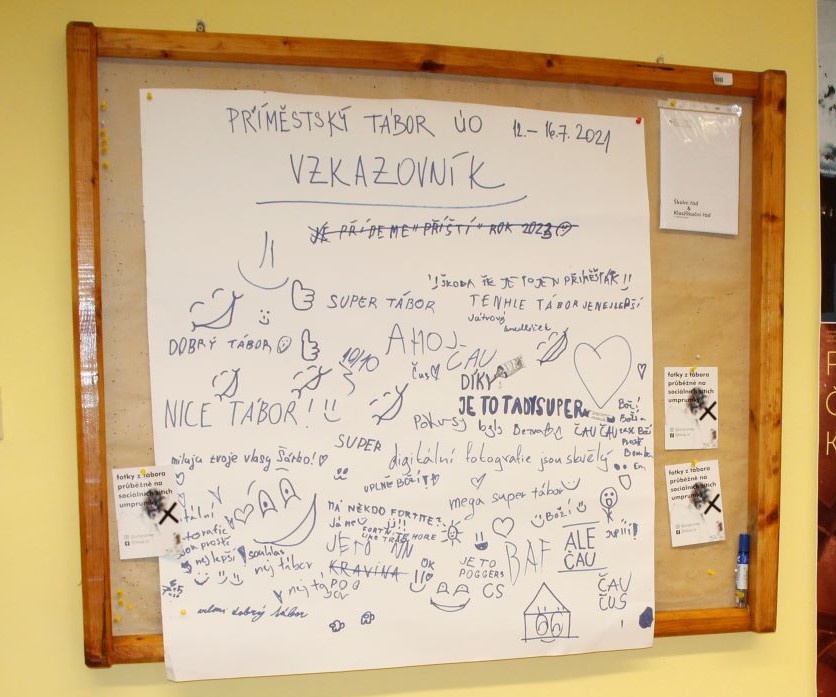 PŘÍMĚSTSKÝ TÁBOR ÚO 12.–16.7. 2021
VZKAZOVNÍK
PŘÍDEME PŘÍŠTÍ ROK 2023
ŠKODA ŽE JE TO JEN PŘÍMĚŠŤÁK!!
SUPER TÁBOR
TENHLE TÁBOR JE NEJLEPŠÍ
Játrový
knedlíček
DOBRÝ TÁBOR
AHOJ
10/10
ČAU
Čus
DÍKY
JE TO TADY SUPER
NICE TÁBOR!
Pokusy byly
ČAU ČAU
SUPER
miluju tvoje vlasy Šárbo!
digitální fotografie jsou skvělý
UPLNĚ BOŽÍ
mega super tábor
BOŽÍ
MÁ NĚKDO FORTNITE?
JE TO NN
KRAVINA
BAF
ALE
ČAU
nejlepší
souhlas
nej tábor
OK
JE TO
POGGERS
CS
ČAU
ČUS
velmi dobrý tábor
Školní řád
&
Klasifikační řád
fotky z tábora
průběžně na
sociálních sítích
umprum
fotky z tábora
průběžně na
sociálních sítích
umprum
fotky z tábora
průběžně na
sociálních sítích
umprum